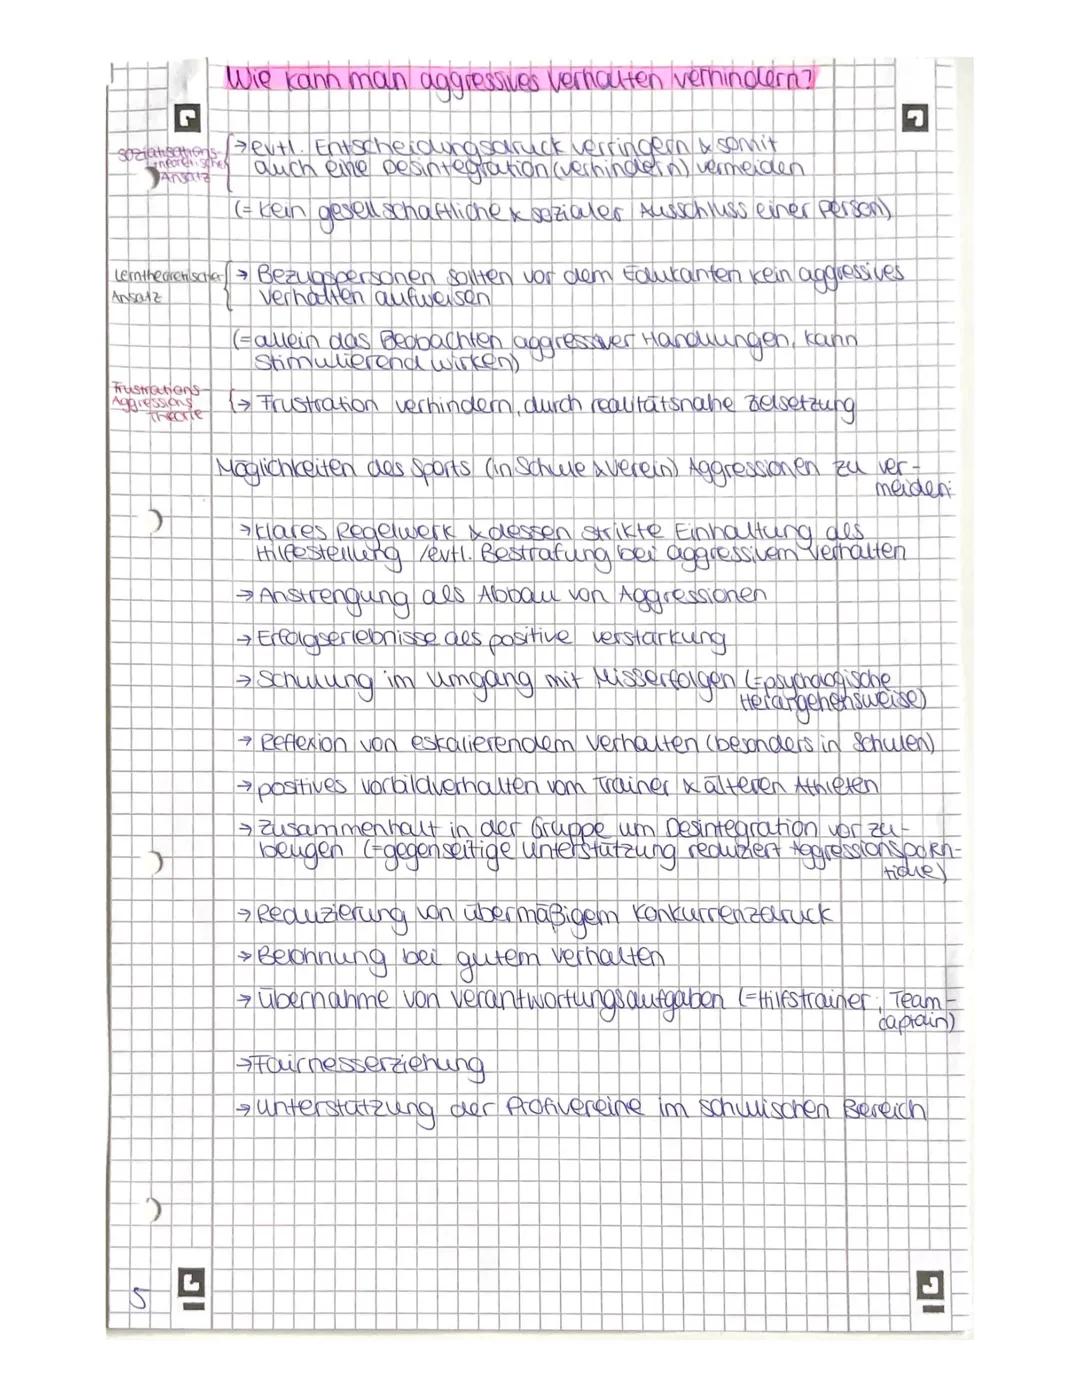 Wie kann man aggressives Verhalten verhindern?
sozialisations-
theoretischer
Ansatz
→ evtl. Entscheidungsdruck verringern & somit
auch eine Desintegration (verhindern) vermeiden
(= kein gesellschaftliche & sozialer Ausschluss einer Person)
Lerntheoretischer
Ansatz
→ Bezugspersonen sollten vor dem Edukanten kein aggressives
Verhalten aufweisen
(= allein das Beobachten aggressiver Handlungen, kann
stimulierend wirken)
Frustrations
Aggressions
Theorie
→ Frustration verhindern, durch realitätsnahe Zielsetzung
Möglichkeiten des Sports (in Schule & Verein) Aggressionen zu ver-
meiden:
→ klares Regelwerk & dessen strikte Einhaltung als
Hilfestellung / evtl. Bestrafung bei aggressivem Verhalten
→ Anstrengung als Abbau von Aggressionen
→ Erfolgserlebnisse als positive Verstärkung
→ Schulung im Umgang mit Misserfolgen (= psychologische
Herangehensweise)
→ Reflexion von eskalierendem Verhalten (besonders in Schulen)
→ positives Vorbildverhalten vom Trainer & älteren Athleten
→ Zusammenhalt in der Gruppe um Desintegration vorzu-
beugen (= gegenseitige Unterstützung reduziert
→ Reduzierung von übermäßigem Konkurrenzdruck
→ Belohnung bei gutem Verhalten
→ Übernahme von Verantwortungsaufgaben (= Hilfstrainer; Team-
captain)
→ Fairnesserziehung
→ Unterstützung der Profivereine im schulischen Bereich
5